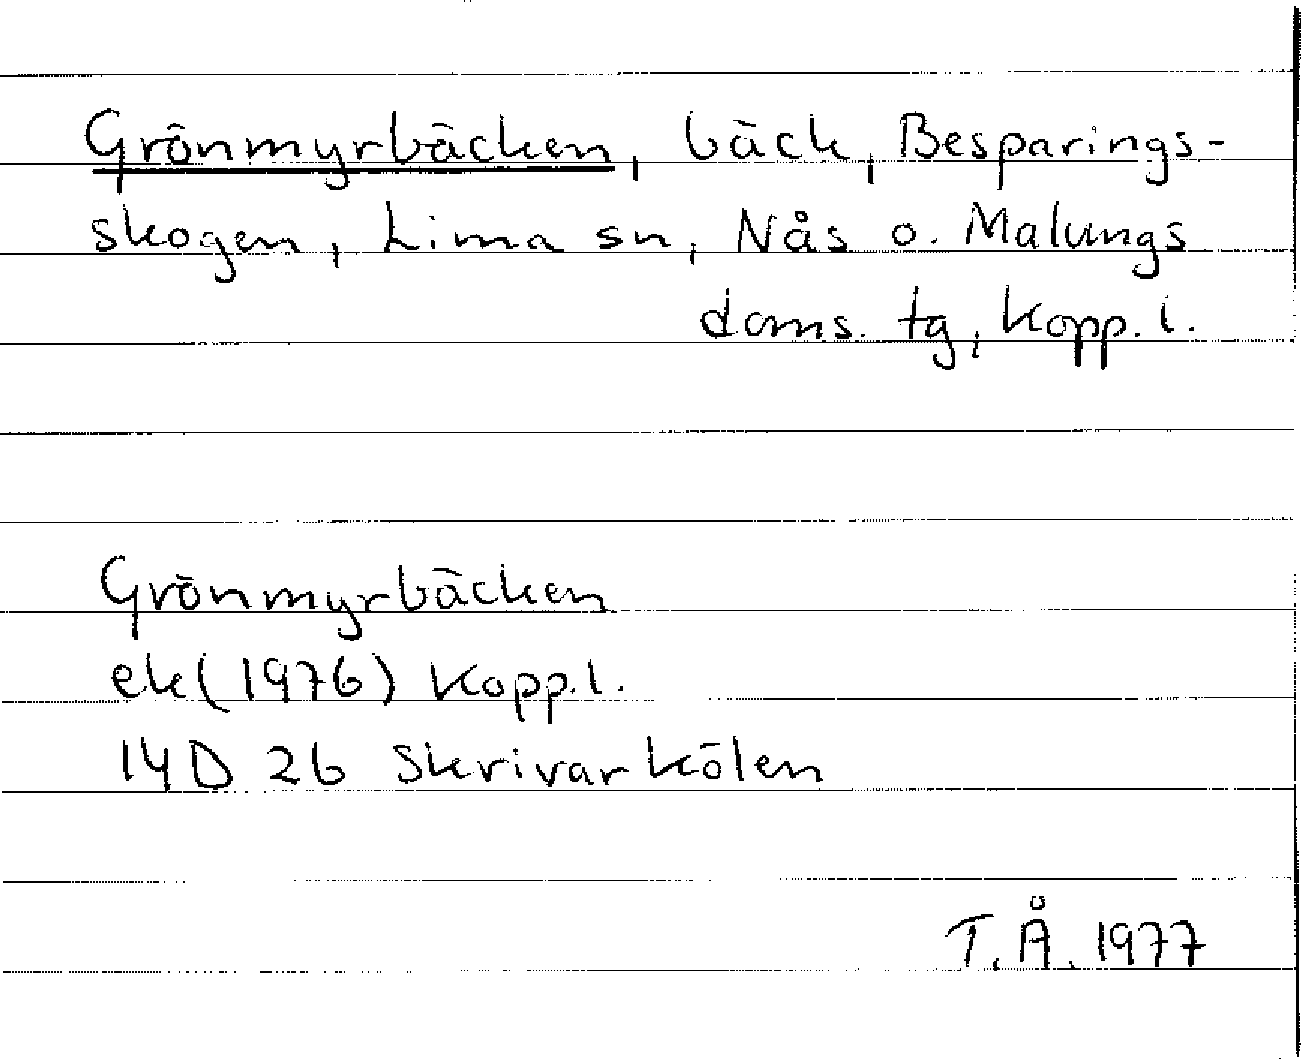 Grönmyrbäcken, bäck, Besparings-
skogen, Lima sn, Nås o. Malungs
doms. tg, Kopp. l.
Grönmyrbäcken
ek(1976) Kopp.l.
14D 2b Skrivarkölen
T.Å. 1977